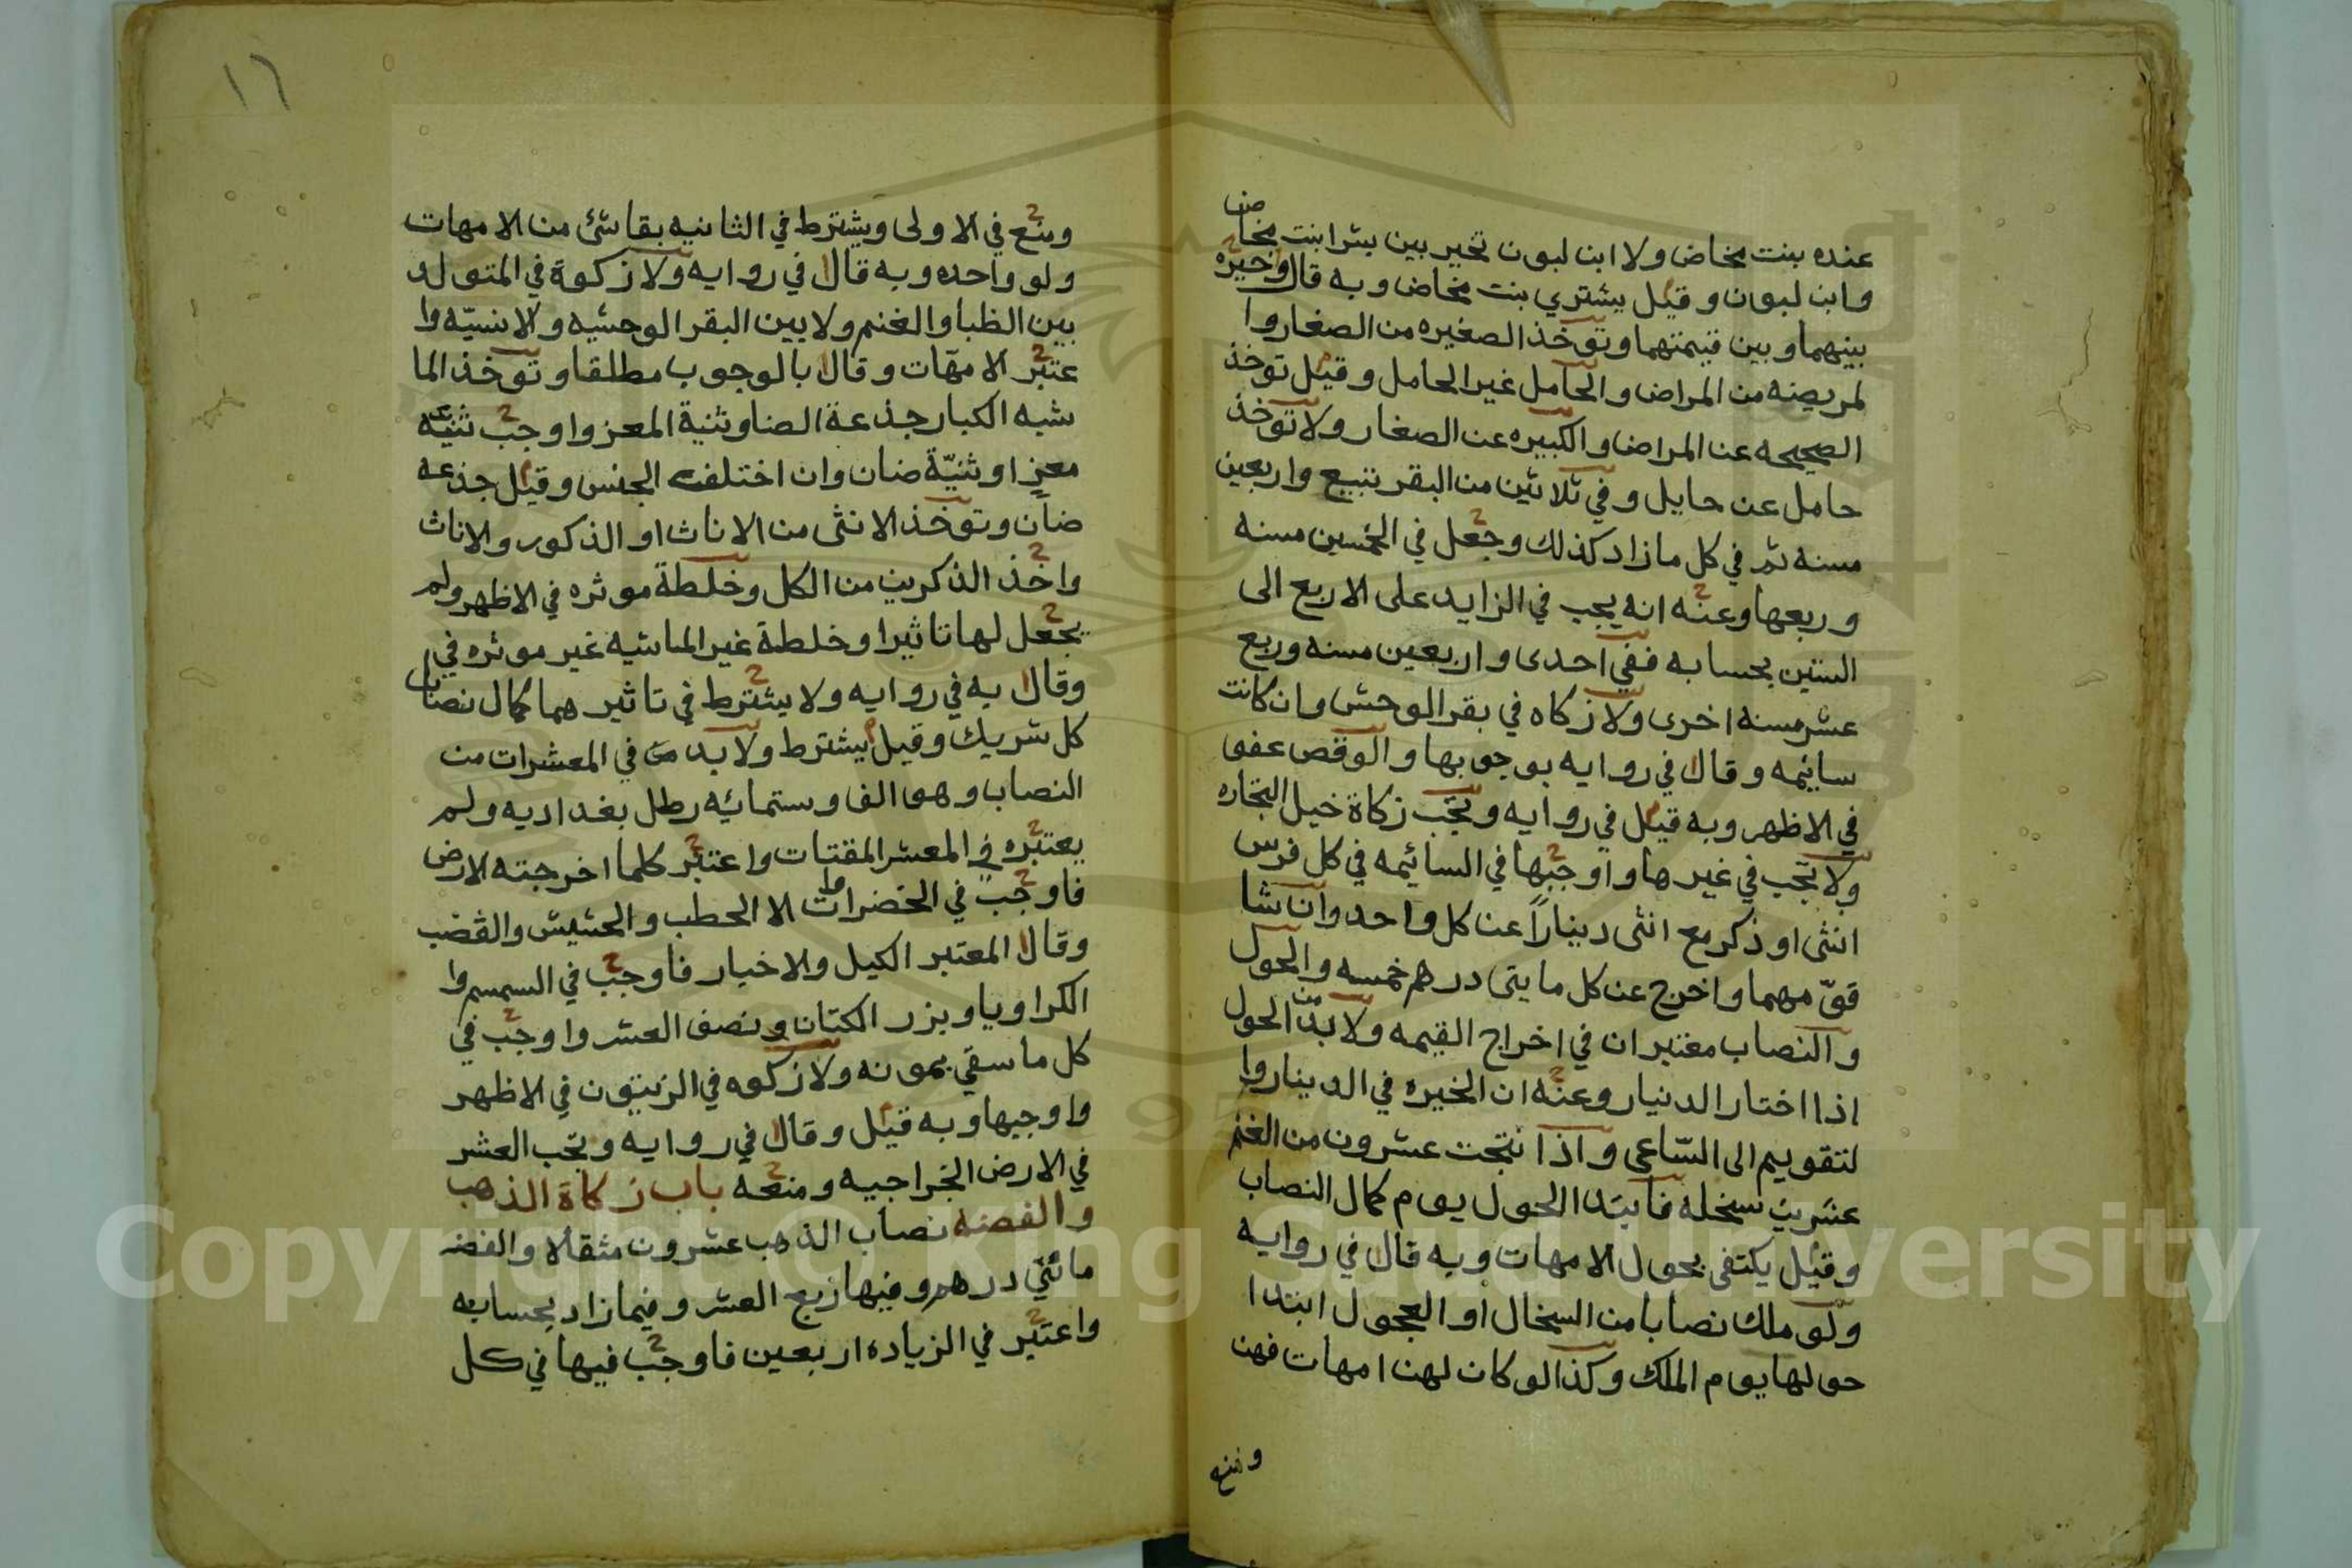 عنده بنت مخاض ولا ابن لبون تخير بين بشرا بنت مخاض
وابن لبون وقيل يشتري بنت مخاض وبه قال وخيره
بينهما وبين قيمتهما وتوخذ الصغيره من الصغار وا
لمريضه من المراض والحامل غير الحامل وقيل توخذ
الصحيحه عن المراض والكبيره عن الصغار ولا توخذ
حامل عن حايل وفي ثلاثين من البقر تبيع واربعين
مسنه ثم في كل ما زاد كذلك وجعل في الخمسين مسنه
وربعها وعنه انه يجب في الزايد على الاربع الى
الستين بحسابه ففي احدى واربعين مسنه وربع
عشر مسنه اخرى ولا زكاه في بقر الوحش وان كانت
سايمه وقال في روايه بوجوبها والوقص عفو
في الاظهر وبه قيل في روايه وتجب زكاة خيل التجاره
ولا تجب في غيرها واوجبها في السائيمه في كل فرس
انثى او ذكر مع انثى دينارا عن كل واحد وان شا
قوّمهما واخرج عن كل مايتى درهم خمسه والحول
والنصاب معتبران في اخراج القيمه ولا بد من الحول
اذا اختار الدنيار وعنه ان الخيره في الدينار وا
لتقويم الى الساعي واذا نتجت عشرون من الغنم
عشرين سخله فابتدا الحول يوم كمال النصاب
وقيل يكتفى بحول الامهات وبه قال في روايه
ولو ملك نصابا من السخال او العجول ابتدا
حولها يوم الملك وكذا لو كان لهن امهات فهن
ومنع
١٦
ومنع في الاولى ويشترط في الثانيه بقا شئ من الامهات
ولو واحده وبه قال في روايه ولا زكوة في المتولد
بين الظبا والغنم ولا بين البقر الوحشيه والانسيّه وا
عتبر الامهّات وقال بالوجوب مطلقا وتوخذ الما
شبه الكبار جذعة الضا وثنية المعز واوجب ثنيّه
معز او ثنيّة ضان وان اختلف الجنس وقيل جذعه
ضان وتوخذ الانثى من الاناث او الذكور والاناث
واخذ الذكرين من الكل وخلطة موثره في الاظهر ولم
يجعل لها تاثيرا وخلطة غير الماشيه غير موثره في
وقال به في روايه ولا يشترط في تاثيرهما كمال نصاب
كل شريك وقيل يشترط ولا بد في المعشرات من
النصاب وهو الف وستمائيه رطل بغداديه ولم
يعتبره في المعشر المقتات واعتبر كلما اخرجته الارض
فاوجب في الخضراوات الا الحطب والحشيش والقضب
وقال المعتبر الكيل والاخيار فاوجب في السمسم وا
الكراويا وبزر الكتان ونصف العشر واوجب في
كل ما سقي بمونه ولا زكوه في الزيتون في الاظهر
واوجبها وبه قيل وقال في روايه وتجب العشر
في الارض الخراجيه ومنعه باب زكاة الذهب
والفضه نصاب الذهب عشرون مثقالا والفضه
مائتي درهم وفيها ربع العشر وفيما زاد بحسابه
واعتبر في الزياده اربعين فاوجب فيها في كل
Copyright © King Saud University